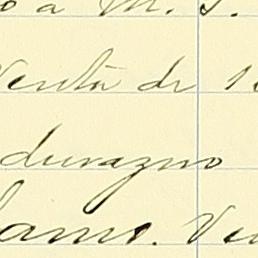 o a M. S.
Venta de 1
durazno
lamo. Ven